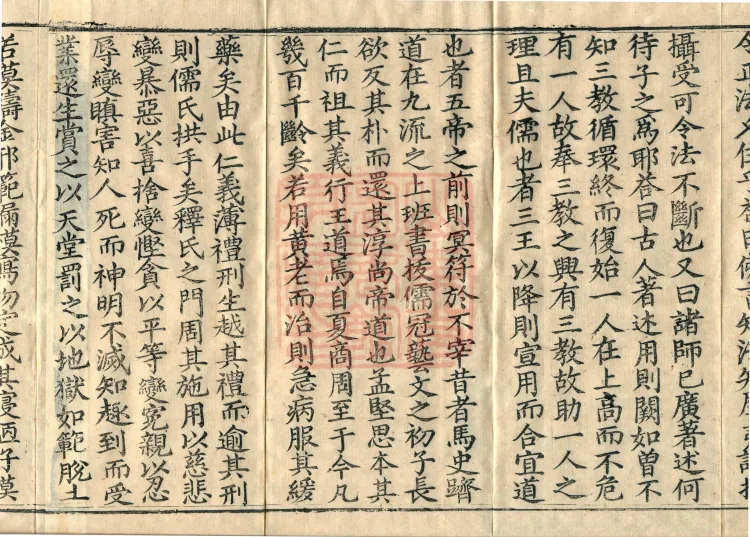 攝受可令法不斷也又曰諸師已廣著述何
待子之爲耶荅曰古人著述用則闕如曾不
知三教循環終而復始一人在上高而不危
有一人故奉三教之興有三教故助一人之
理且夫儒也者三王以降則宣用而合宜道
也者五帝之前則冥符於不宰昔者馬史躋
道在九流之上班書拔儒冠藝文之初子長
欲反其朴而還其淳尚帝道也孟堅思本其
仁而祖其義行王道焉自夏商周至于今凡
幾百千齡矣若用黄老而治則急病服其緩
藥矣由此仁義薄禮刑生越其禮而逾其刑
則儒氏拱手矣釋氏之門周其施用以慈悲
變暴惡以喜捨變慳貪以平等變寃親以忍
辱變瞋害知人死而神明不滅知趣到而受
業還生賞之以天堂罰之以地獄如範脫土
若模鑄金邪範漏模寫物定成其寢陋子模